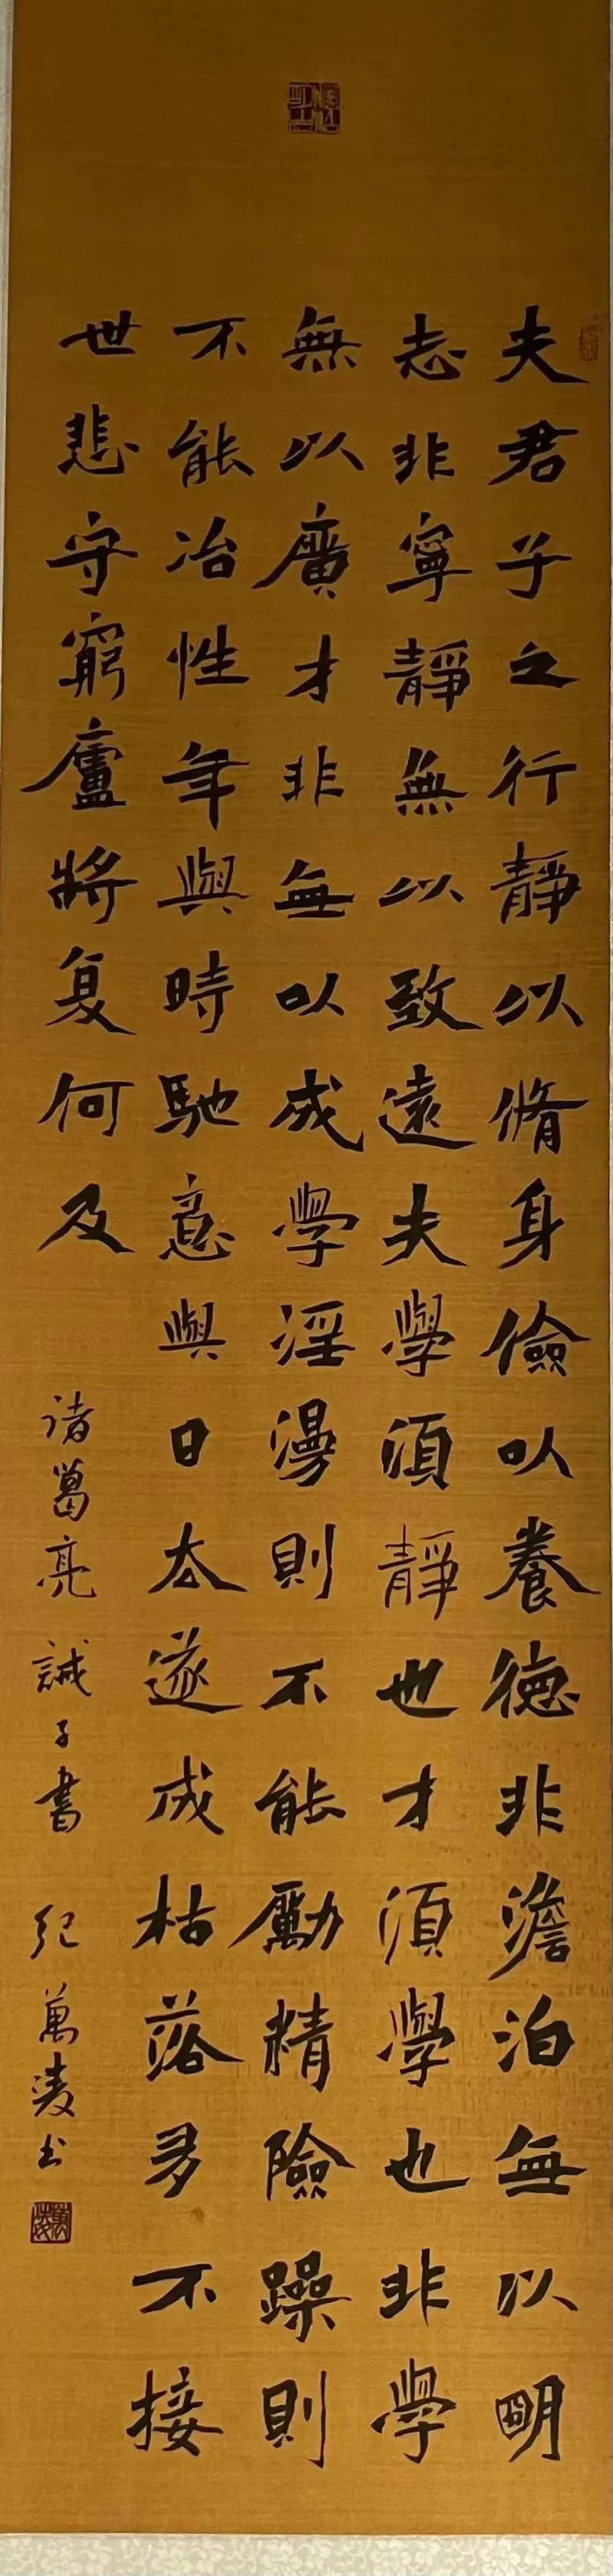 夫君子之行靜以脩身儉以養德非澹泊無以明
志非寧靜無以致遠夫學須靜也才須學也非學
無以廣才非無以成學淫漫則不能勵精險躁則
不能冶性年與時馳意與日去遂成枯落多不接
世悲守窮廬將复何及
諸葛亮 誡子書 紀萬淩书